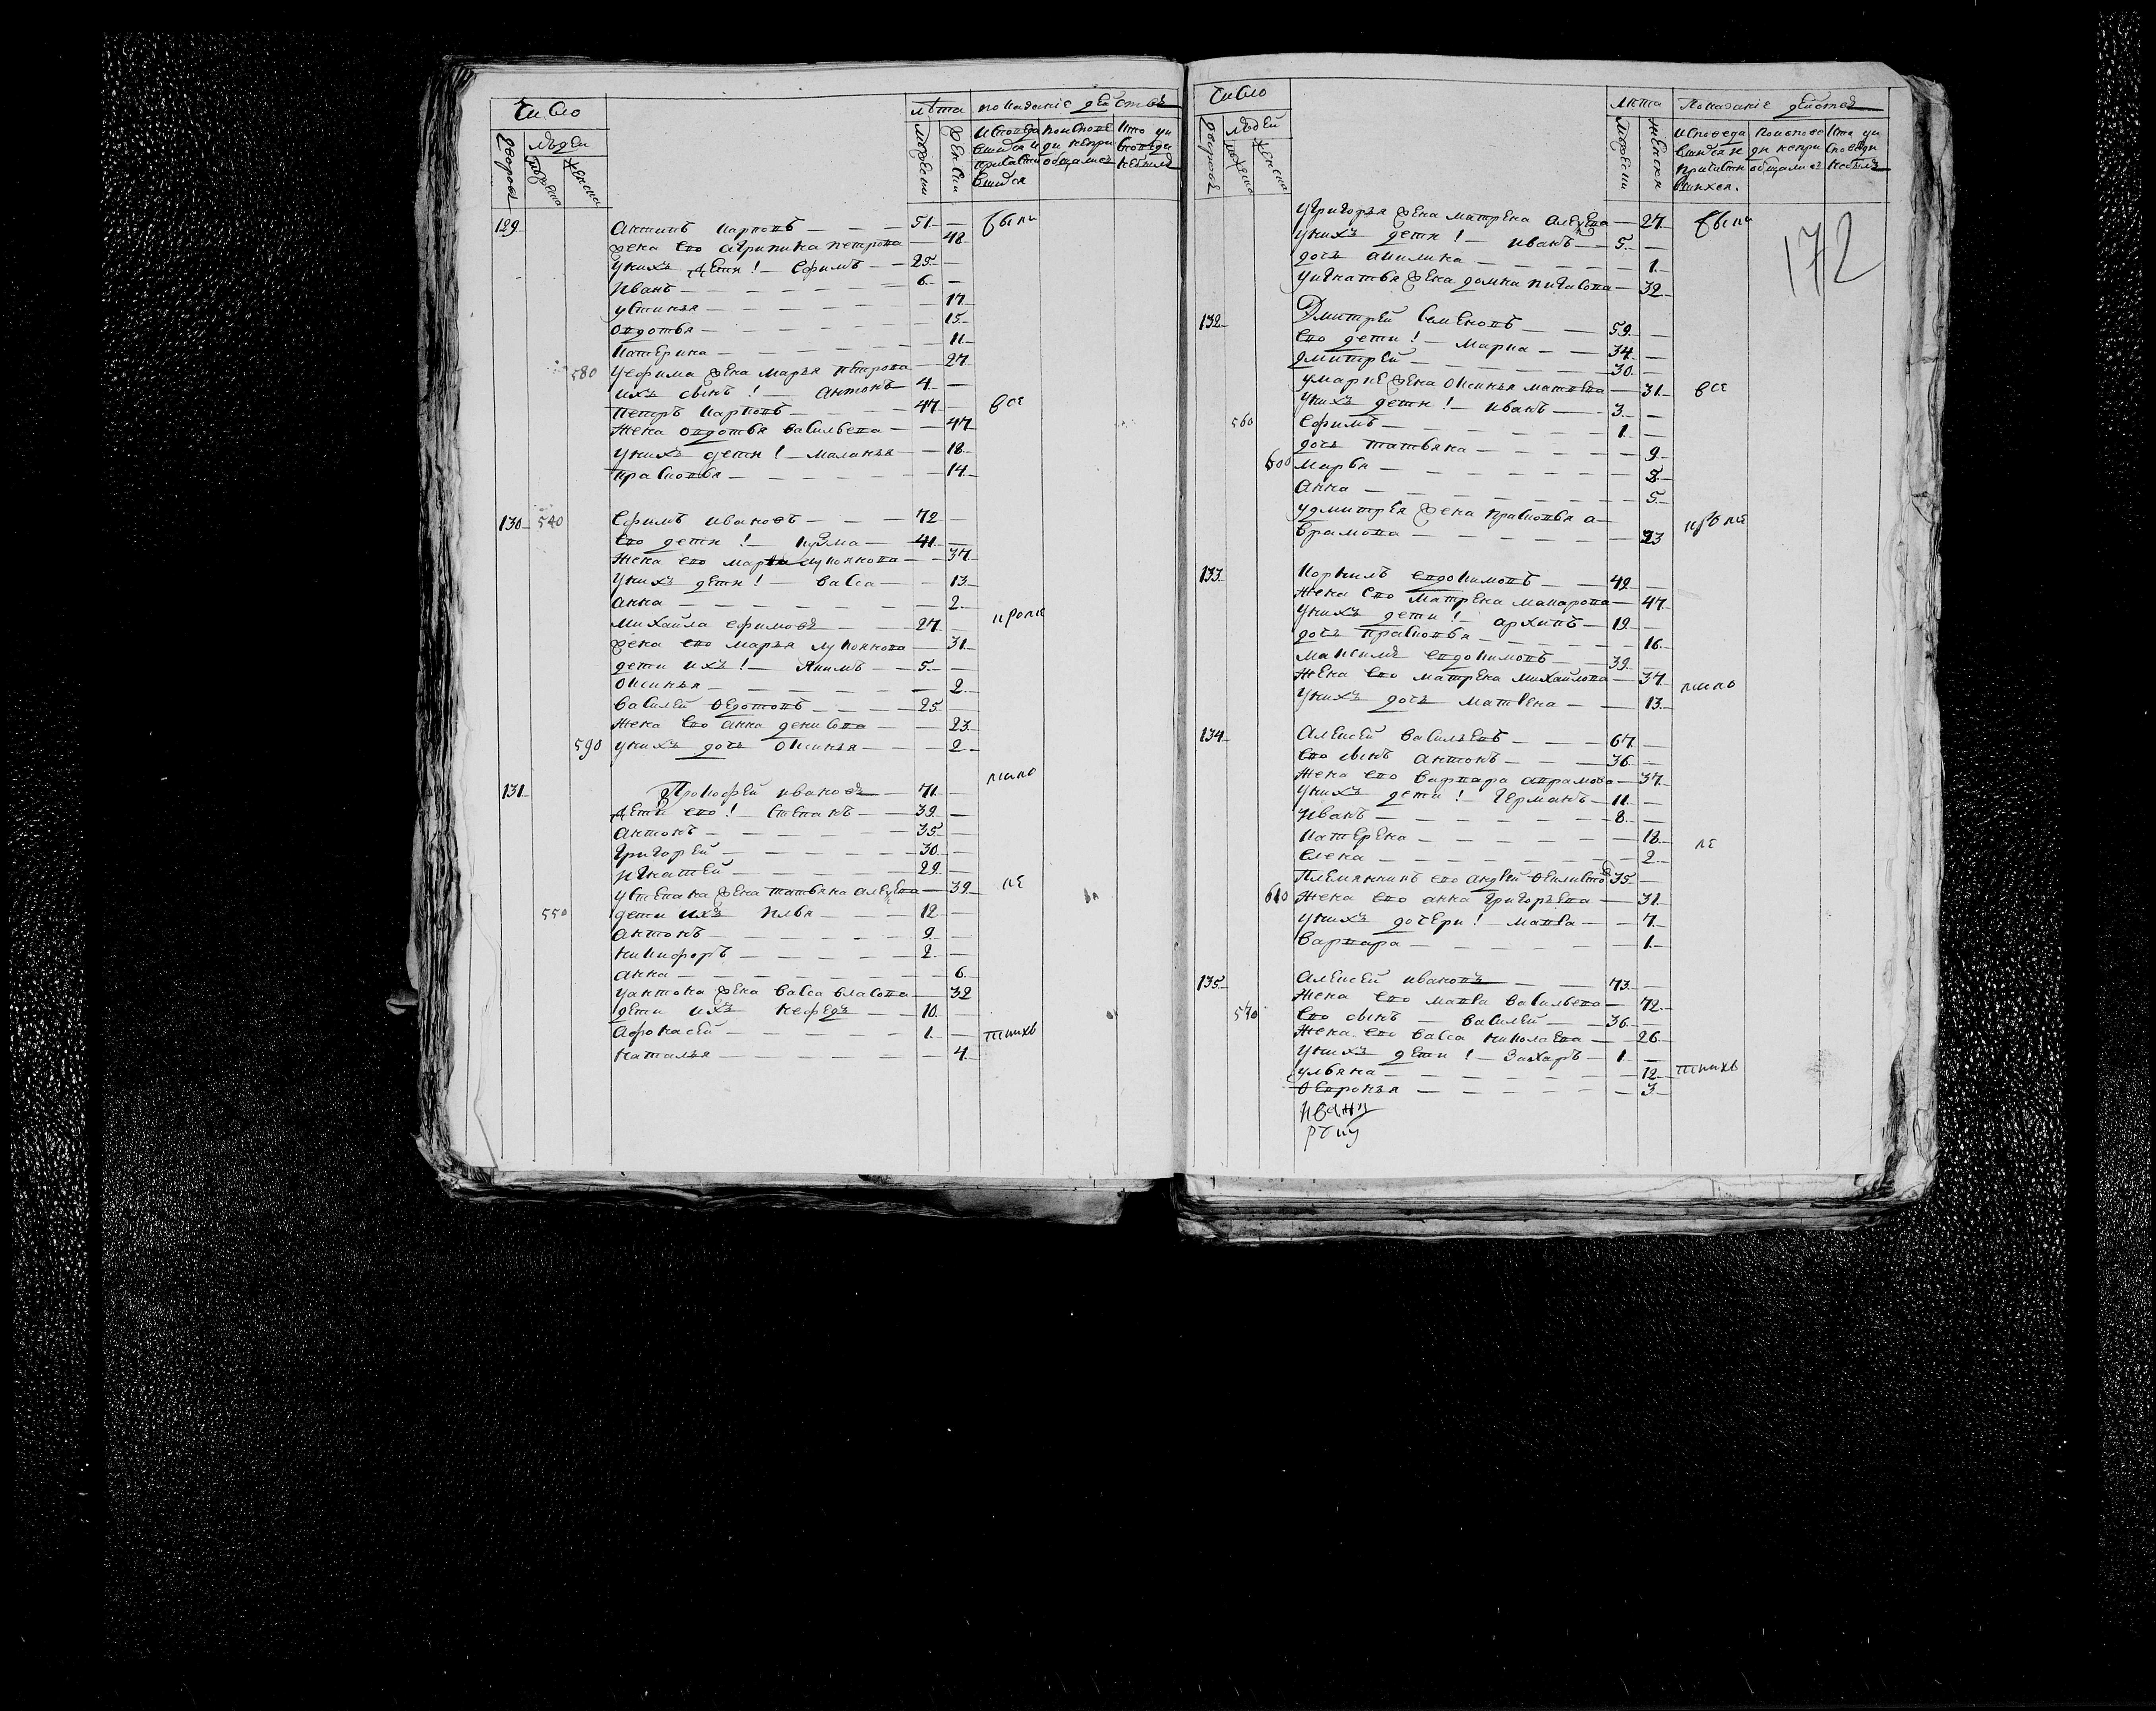 Число
лѣта показанiе действъ
дворовъ
людей
мужеска
женска
мужески
женски
Исповеда
вшихся и
причасти
вшихся
поиспове
ди непри
общались
кто уи
споведи
небылъ
129 Антипъ Карповъ — 51 — были
жена ево Агрипина петрова — 48
уних дети! — Ефимъ — 25 —
Иванъ — 6 —
устинья — 17
овдотья — 15
катерина — 11
580 уефима жена марья петрова — 27
ихъ сынъ! антонъ — 4 —
петръ карповъ — 47 — все
жена овдотья васильева — 47
унихъ дети! — маланья — 18
прасковья — 14
130 540 Ефимъ ивановъ — 72 —
ево дети! — кузма — 41 —
жена ево марья лукоянова — 37
унихъ дети! — васса — 13
анна — 2
михайла ефимовъ — 27 — кроме
жена ево марья лукоянова — 31
дети ихъ! — Якимъ — 5 —
оксинья — 2
василей ѳедотовъ — 25
жена ево анна денисова — 23
590 унихъ дочь оксинья — 2
мало
131 Прокофей ивановъ — 71 —
дети ево! — степанъ — 39 —
антонъ — 35 —
григорей — 30 —
игнатей — 29 —
устепана жена татьяна алеѯева — 39 ле
550 дети ихъ илья — 12 —
антонъ — 9 —
никифоръ — 2 —
анна — 6
уантона жена васса власова — 32
дети ихъ нефедъ — 10 —
афонасей — 1 — тнихъ
наталья — 4
Число
лѣта Показанiе действъ
дворовъ
людей
мужеска
женска
мужески
женски
Исповеда
вшихся и
причасти
вшихся.
поиспове
ди непри
общались
кто уи
споведи
небылъ
172
угригорья жена матрена алеѯева — 27 были
унихъ дети! — иванъ — 5 —
дочь акилина — 1
уигнатья жена домна пигасова — 32
132 Дмитрей Семеновъ — 59 —
ево дети! — марка — 34 —
дмитрей — 30 —
умарке жена оксинья матвева — 31 все
унихъ дети! — иванъ — 3 —
560 Ефимъ — 1 —
дочь татьяна — 9
600 марья — 8
анна — 5
удмитрея жена прасковья а-
врамова — 23 кроме
133 Корнилъ евдокимовъ — 49 —
жена ево матрена макарова — 47
унихъ дети! — архипъ — 19 —
дочь прасковья — 16
максимъ евдокимовъ — 39 —
жена ево матрена михайлова — 37
мало
унихъ дочь матвена — 13
134 алексей васильевъ — 67 —
ево сынъ антонъ — 36 —
жена ево варвара аврамова — 37
унихъ дети! — германъ — 11 —
иванъ — 8 —
катерена — 18
ле
елена — 2
племянникъ ево андрей ѳеиливтов 35 —
610 жена ево анна григорьева — 31
унихъ дочери! — мавва — 7
варвара — 1
135 алексей ивановъ — 73 —
жена ево мавва васильева — 72
570 ево сынъ — василей — 36 —
жена ево васса николаева — 26
унихъ дети! — Захаръ — 1 —
ульяна — 12 тнихъ
ѳевронья — 3
Ивану